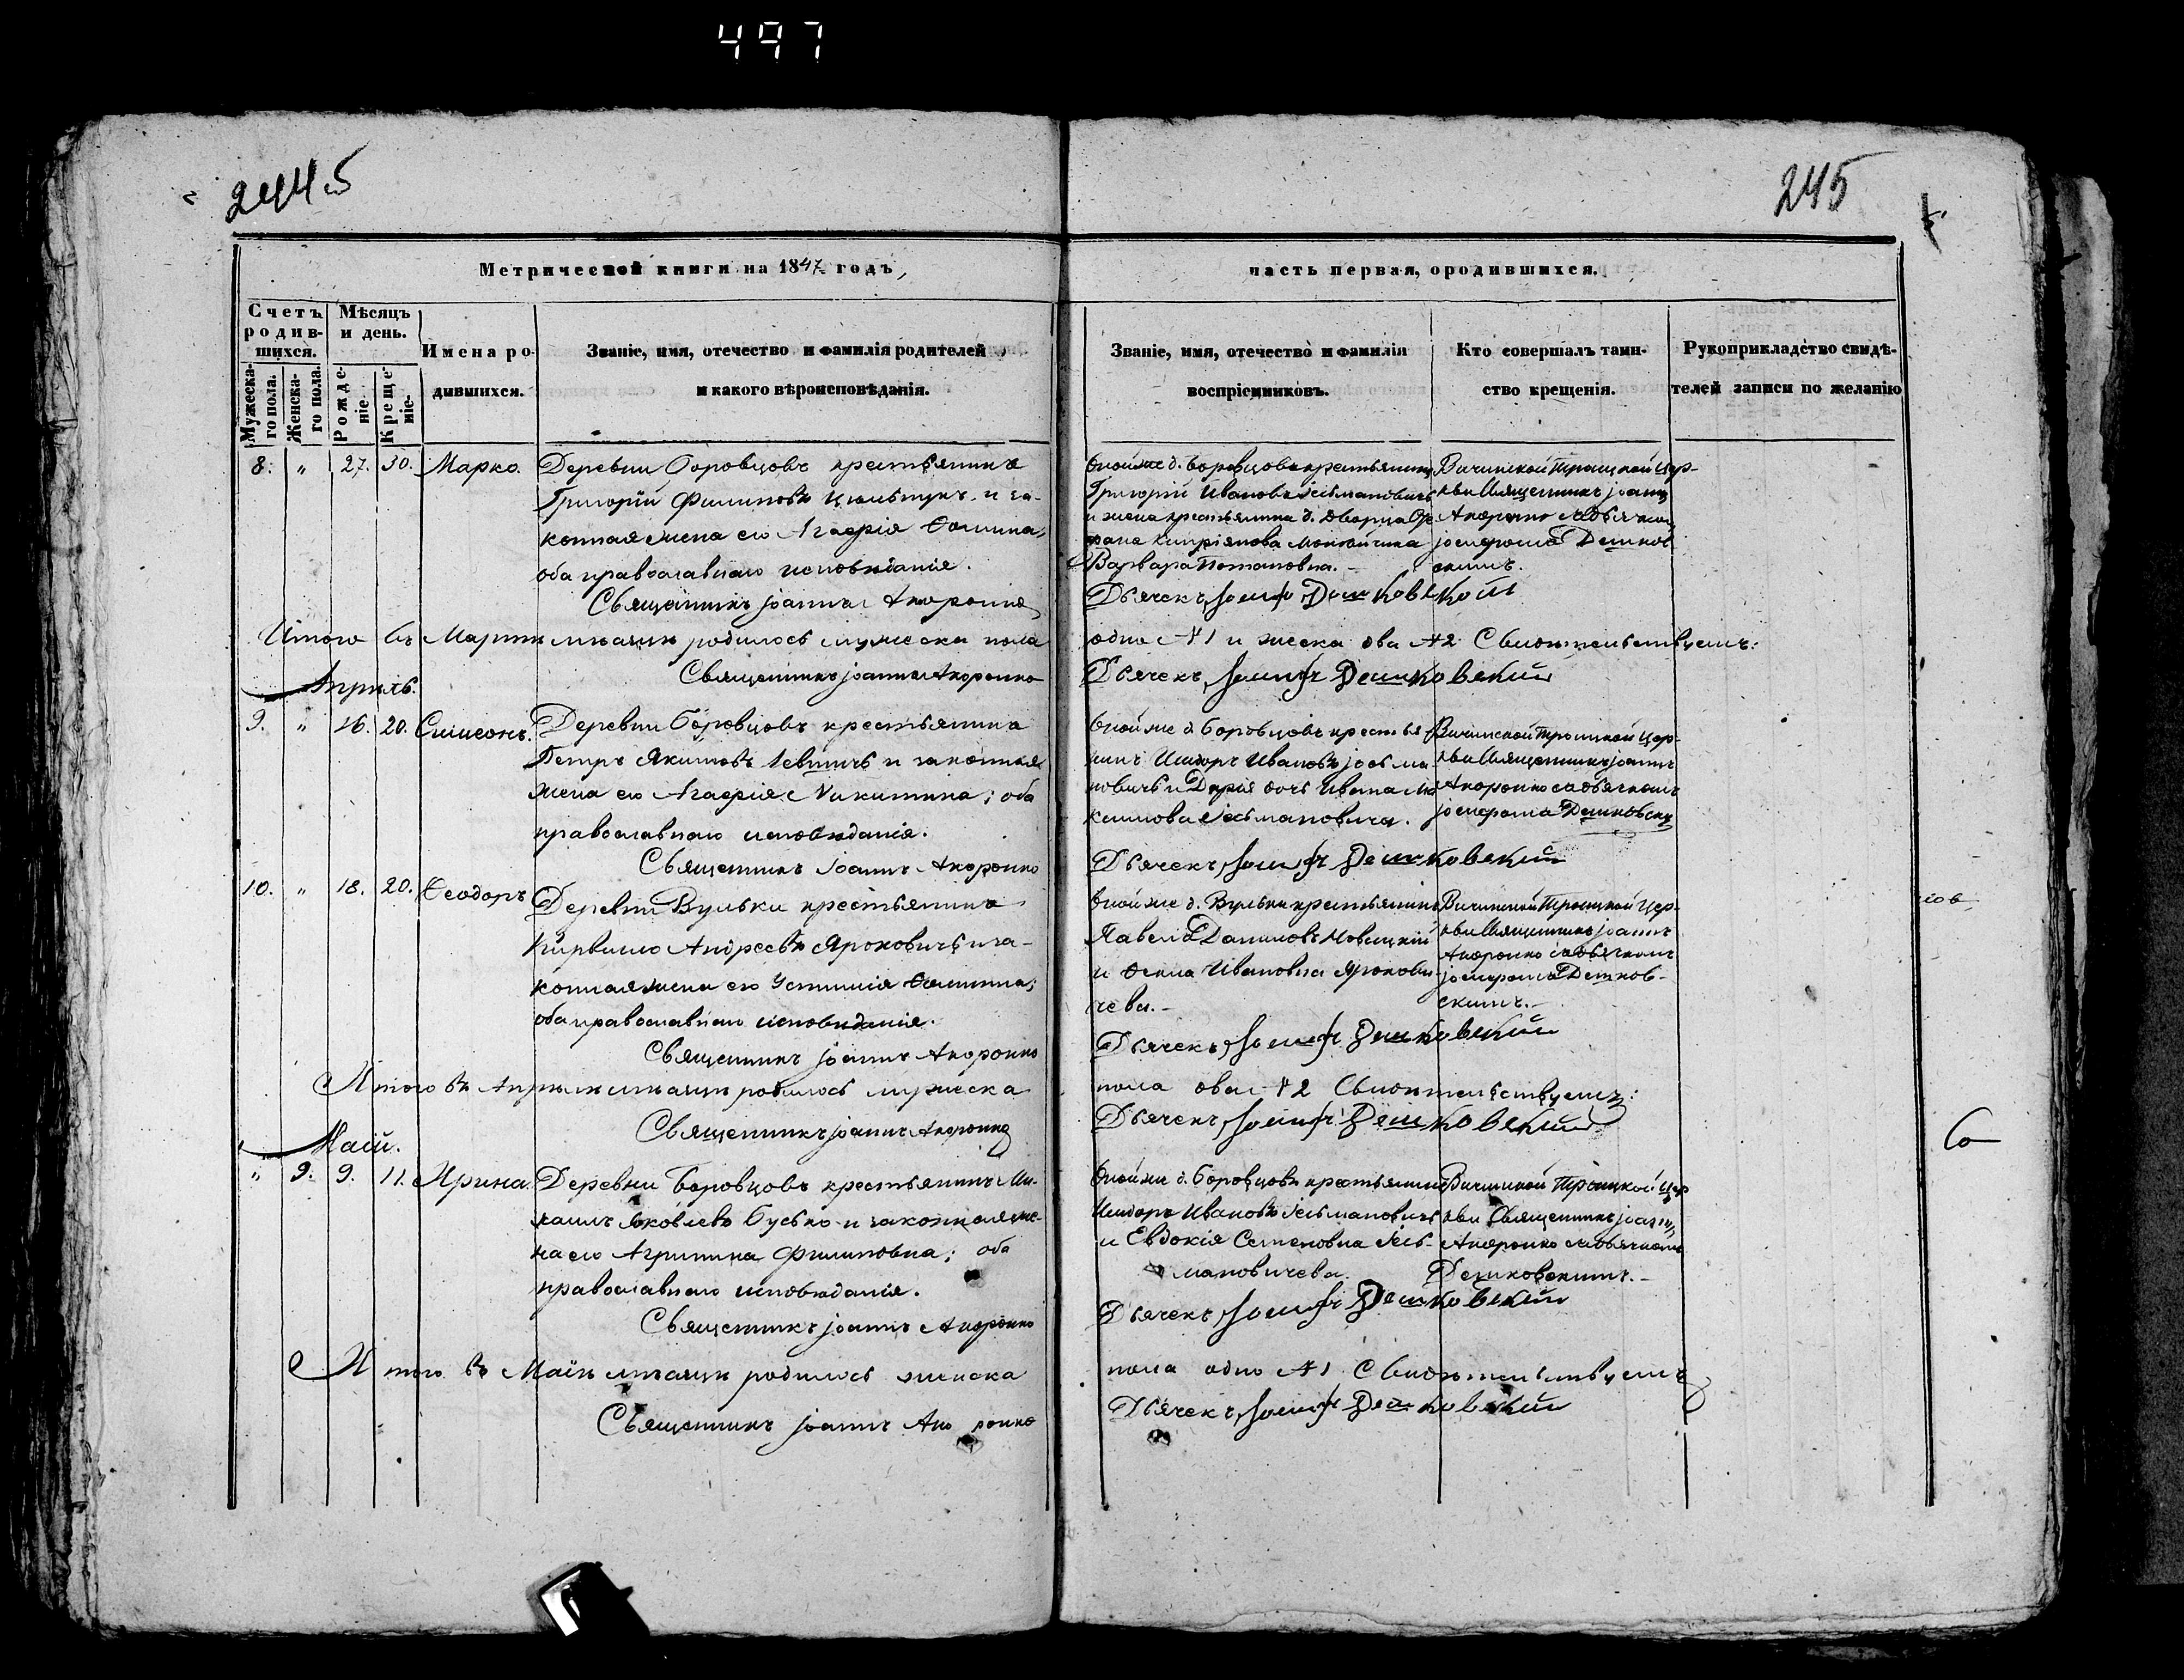 497
244.5
245
Метрической книги на 1847 годъ,
часть первая, о родившихся.
Счетъ родив-
шихся.
Мужеска-
го пола.
Женска-
го пола.
Мѣсяцъ
и день.
Рожде-
ніе.
Креще-
ніе.
Имена ро-
дившихся.
Званіе, имя, отечество и фамилія родителей
и какого вѣроисповѣданія.
Званіе, имя, отечество и фамилія
воспріемниковъ.
Кто совершалъ таин-
ство крещенія.
Рукоприкладство свидѣ-
телей записи по желанію
8. " 27. 30. Марко.
Деревни Боровцовъ крестьянинъ
Григорій Филиповъ и за-
конная жена его Агафія Фомина,
оба православнаго исповѣданія.
Священникъ Іоаннъ
Оной же д. Боровцовъ крестьянинъ
Григорій Ивановъ
и жена крестьянина д.
Варвара Потаповна.
Дьячекъ Іосифъ Дешковскій
Вичинской Троицкой Цер-
кви Священникъ Іоаннъ
съ дьячкомъ
Іосифомъ Дешков-
скимъ.
Итого въ Мартѣ мѣсяцѣ родилось мужеска пола
одно №1 и женска два №2 Свидѣтельствуемъ:
Священникъ Іоаннъ
Дьячекъ Іосифъ Дешковскій
Апрѣль.
9. " 16. 20. Симеонъ.
Деревни Боровцовъ крестьянинъ
Петръ Якимовъ и законная
жена его Агафія Никитина; оба
православнаго исповѣданія.
Священникъ Іоаннъ
Оной же д. Боровцовъ крестья-
нинъ Исидоръ Ивановъ
и Дарія дочь Ивана
Дьячекъ Іосифъ Дешковскій
Вичинской Троицкой Цер-
кви Священникъ Іоаннъ
съ дьячкомъ
Іосифомъ
10. " 18. 20. Ѳеодоръ
Деревни Вульки крестьянинъ
Андреевъ Яроковичъ и за-
конная жена его Устинія Фомина;
оба православнаго исповѣданія.
Священникъ Іоаннъ
Оной же д. Вульки крестьянинъ
Павелъ Даниловъ Новицкій
и Ѳекла ИвановнаЯрокови-
чева.
Дьячекъ Іосифъ Дешковскій
Вичинской Троицкой Цер-
кви Священникъ Іоаннъ
съ дьячкомъ
Іосифомъ Дешков-
скимъ.
Итого въ Апрѣлѣ мѣсяцѣ родилось мужеска
пола два №2 Свидѣтельствуемъ:
Священникъ Іоаннъ
Дьячекъ Іосифъ Дешковскій
Маій.
" 9. 9. 11. Ирина.
Деревни Боровцовъ крестьянинъ Ми-
хаилъ Яковлевъ Бусько и законная же-
на его Агрипина Филиповна; оба
православнаго исповѣданія.
Священникъ Іоаннъ
Оной же д. Боровцовъ крестьянинъ
Исидоръ Ивановъ
и Евдокія Семеновна
мановичева.
Дьячекъ Іосифъ Дешковскій
Вичинской Троицкой Цер
кви Священникъ Іоаннъ
съ дьячкомъ
Дешковскимъ.
Итого въ Маіѣ мѣсяцѣ родилось женска
пола одно №1 Свидѣтельствуемъ
Священникъ Іоаннъ
Дьячекъ Іосифъ Дешковскій